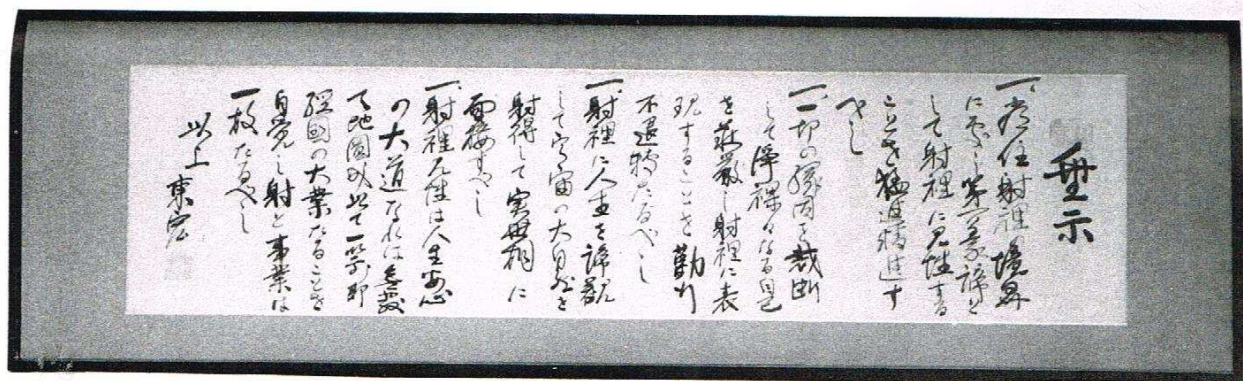 垂示
一、常住射裡の境界
に in し第一義諦と
して射裡に見性する
ことを猛進精進す
べし
一、一切の縁因を裁断
して浄裸々なる自己
を荘厳し射裡に表
現することを勤行
不退転たるべし
一、射裡に人生を諦観
して宇宙の大自然を
射得して実世相に
面接すべし
一、射裡見性は人生安心
の大道なれば
て此図 以て一箭即
経国の大業たることを
自覚し射と事業は
一放たるべし
以上 東宏